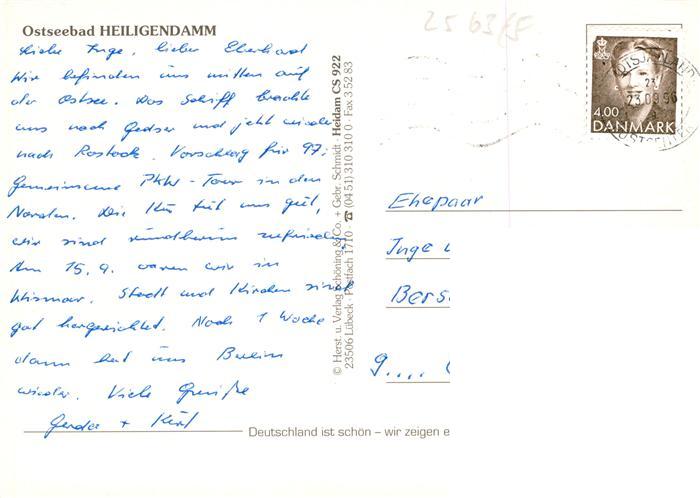 25 63/5
Ostseebad HEILIGENDAMM
Liebe Inge, lieber Eberhard
Wir befinden uns mitten auf
der Ostsee. Das Schiff brachte
uns nach Gedser und jetzt wieder
nach Rostock. Vorschlag für 97:
Gemeinsame PKW-Tour in den
Norden. Die Kur tut uns gut,
wir sind rundherum zufrieden.
Am 15.9. waren wir in
Wismar. Stadt und Kirchen sind
gut hergerichtet. Noch 1 Woche
dann hat uns Berlin
wieder. Viele Grüße
Gerda + Kurt
© Herst. u. Verlag Schöning & Co. + Gebr. Schmidt · Heidam CS 922
23506 Lübeck · Postfach 1710 · ☎ (04 51) 310 310 0 · Fax 3 52 83
4.00
DANMARK
23.09.96
Ehepaar
Inge
Bers
9....
Deutschland ist schön – wir zeigen e